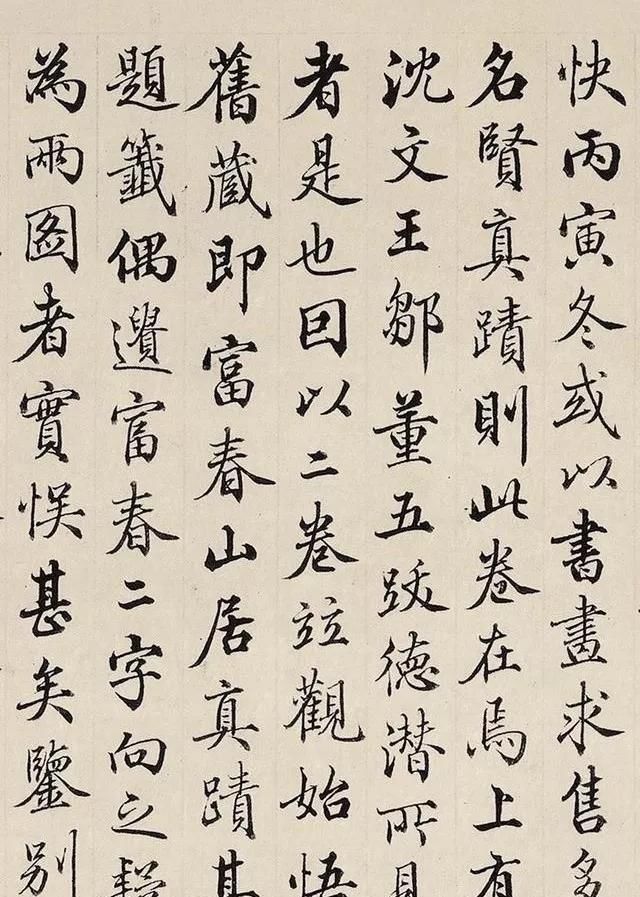 快丙寅冬或以書畫求售多
名賢真蹟則此卷在焉上有
沈文王鄒董五跋德潛所見
者是也因以二卷竝觀始悟
舊藏即富春山居真蹟其
題籤偶遺富春二字向之疑
為兩圖者實悮甚矣鑒別